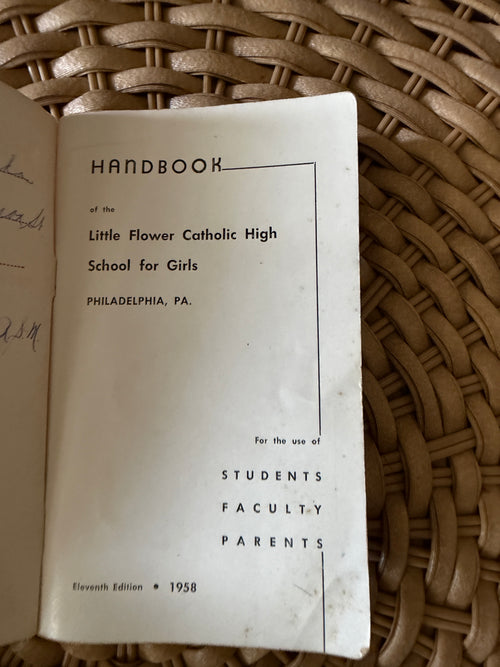 HANDBOOK
of the
Little Flower Catholic High
School for Girls
PHILADELPHIA, PA.
For the use of
STUDENTS
FACULTY
PARENTS
Eleventh Edition • 1958